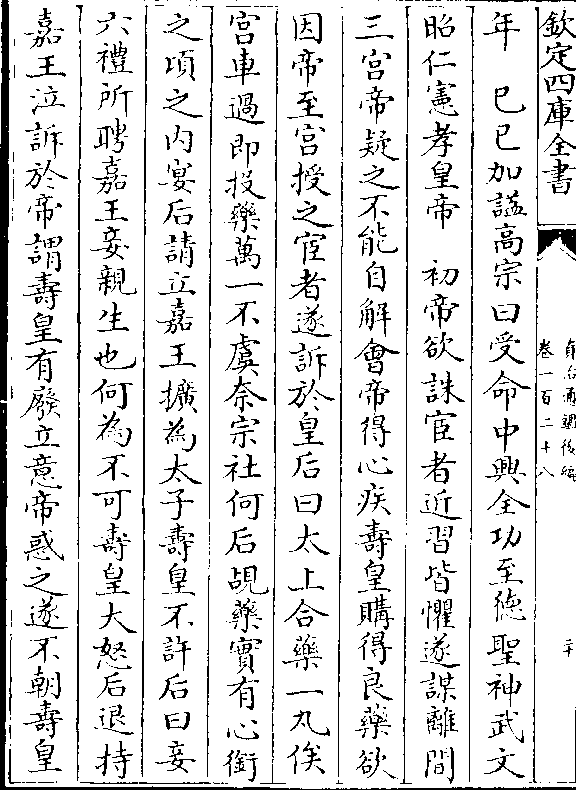 欽定四庫全書
資治通鑑後編
卷一百二十八
二十
年　己巳加謚高宗曰受命中興全功至德聖神武文
昭仁憲孝皇帝　初帝欲誅宦者近習皆懼遂謀離間
三宮帝疑之不能自解會帝得心疾壽皇購得良藥欲
因帝至宮授之宦者遂訴於皇后曰太上合藥一丸俟
宮車過即投藥萬一不虞奈宗社何后覘藥實有心銜
之頃之内宴后請立嘉王擴為太子壽皇不許后曰妾
六禮所聘嘉王妾親生也何為不可壽皇大怒后退持
嘉王泣訴於帝謂壽皇有廢立意帝惑之遂不朝壽皇